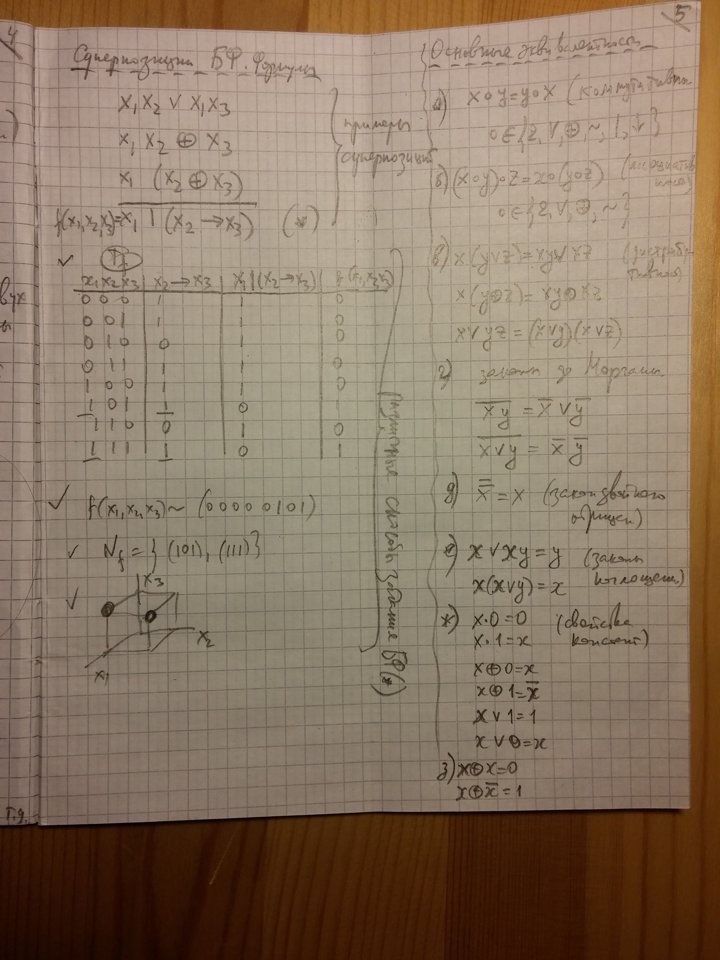 4
5
Суперпозиции БФ. Формулы
x₁x₂ ∨ x₁x₃
x₁x₂ ⊕ x₃
x₁ (x₂ ⊕ x₃)
f(x₁,x₂,x₃)=x₁ | (x₂ → x₃) (*)
примеры
суперпозиций
✓ Tf
x₁ x₂ x₃ | x₂ → x₃ | x₁|(x₂→x₃) | f(x₁,x₂,x₃)
0 0 0 | 1 | 1 | 0
0 0 1 | 1 | 1 | 0
0 1 0 | 0 | 1 | 0
0 1 1 | 1 | 1 | 0
1 0 0 | 1 | 1 | 0
1 0 1 | 1 | 0 | 1
1 1 0 | 0 | 1 | 0
1 1 1 | 1 | 0 | 1
✓ f(x₁,x₂,x₃) ~ (00000101)
✓ N_f = {(101), (111)}
✓
x₃
x₂
x₁
различные способы задания БФ(*)
Основные эквивалентности
а) x∘y=y∘x (коммутативны
∘∈{&,∨,⊕,~,|,↓}
б) (x∘y)∘z=x∘(y∘z) (ассоциатив
∘∈{&,∨,⊕,~}
в) x(y∨z)=xy∨xz (дистрибу
тивны
x(y⊕z)=xy⊕xz
x∨yz=(x∨y)(x∨z)
г) законы де Моргана
x̅y̅ = x̄ ∨ ȳ
x̅∨̅y̅ = x̄ ȳ
д) x̿ = x (закон двойного
отрицан)
е) x∨xy=y (законы
x(x∨y)=x поглощен.)
ж) x·0=0 (свойства
x·1=x констант)
x⊕0=x
x⊕1=x̄
x∨1=1
x∨0=x
з) x⊕x=0
x⊕x̄=1
вух
т.д.